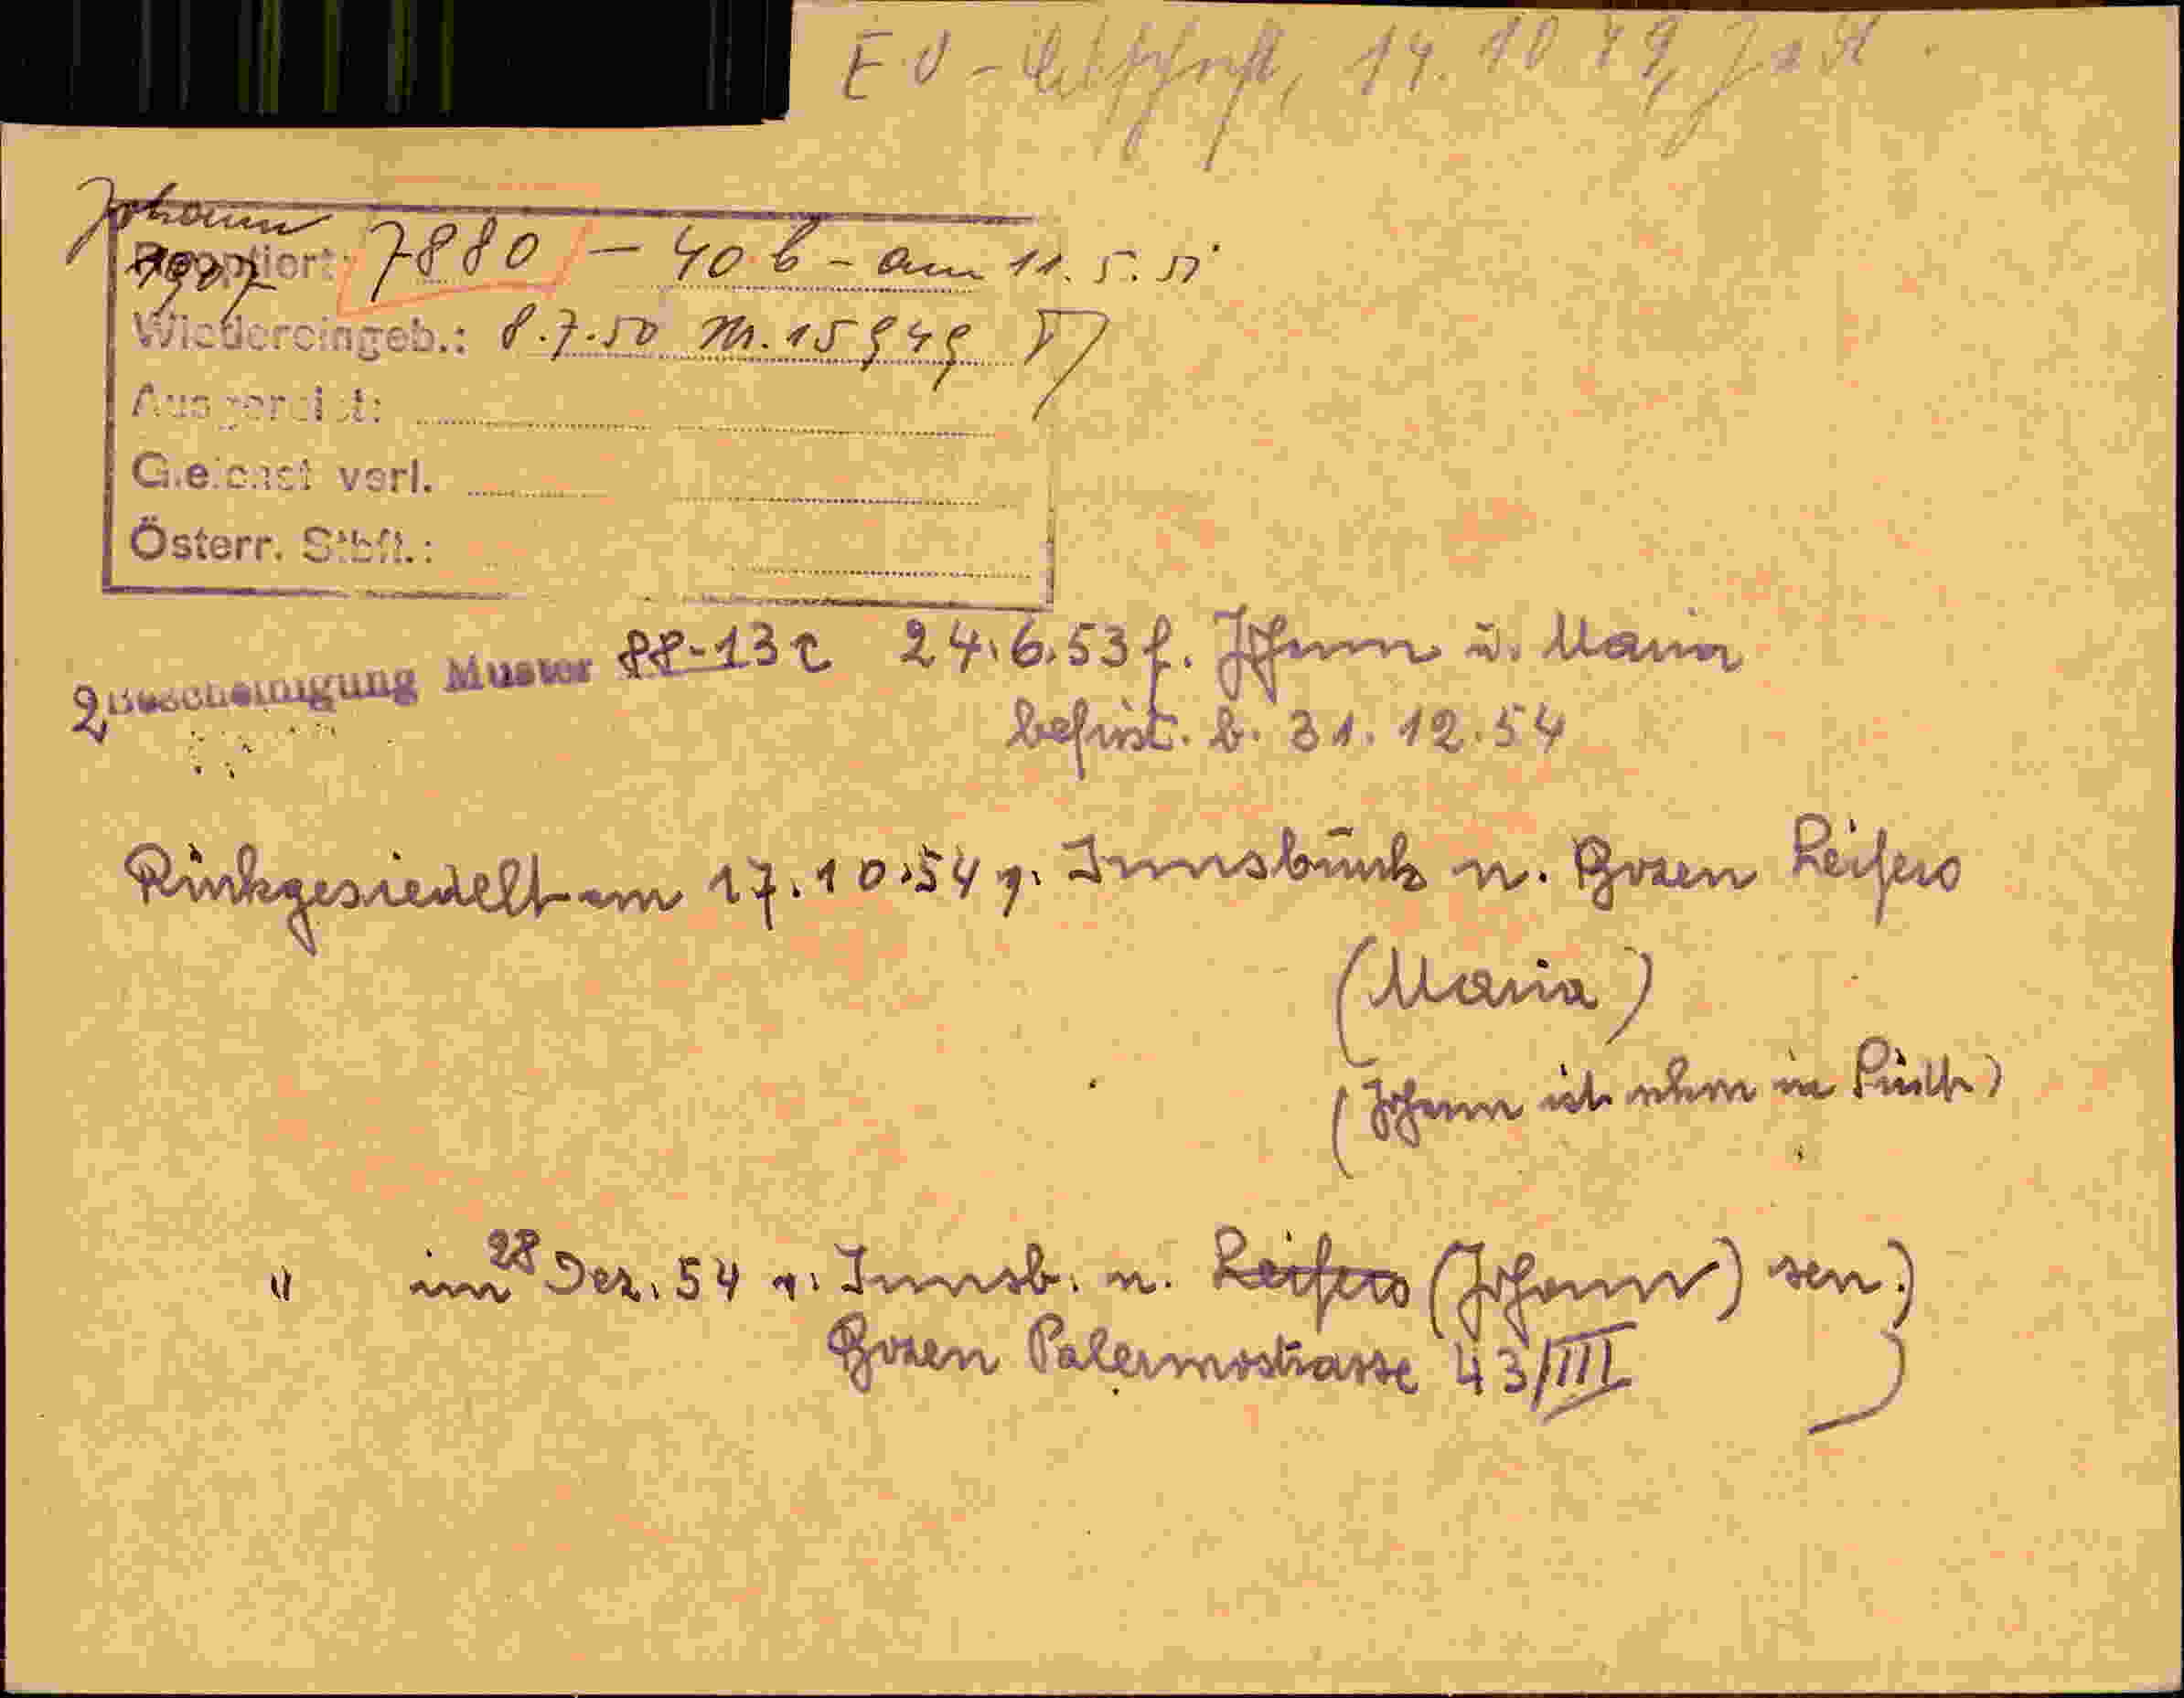 EV - Abschrift, 14. 10. 79,
Johann
1907
Reoptiert: 7880 - 40 b - am 11. 5. 51
Wiedereingeb.: 8.7.50 Nr. 15949
Ausgereist:
G.eichst verl.
Österr. Stbft.:
2 Bescheinigung Muster 88-13c 24.6.53 f. Johann u. Maria
befrist. b. 31. 12. 54
Rückgesiedelt am 17. 10. 54 v. Innsbruck n. Bozen Leifers
(Maria)
(Johann ist schon in Südt.)
" im 28 Dez. 54 v. Innsb. n. Leifers (Johann) sen.)
Bozen Palermostrasse 43/III